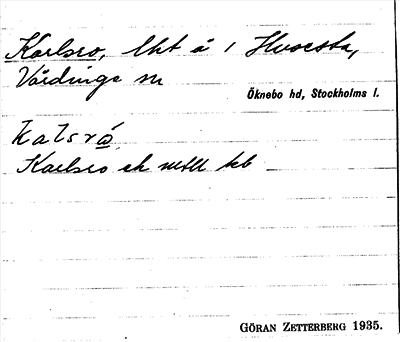 Karlsro, lht å 1 Hvoesta,
Vårdinge sn
Öknebo hd, Stockholms l.
kalsró
Karlsro ek mtll kb
GÖRAN ZETTERBERG 1935.